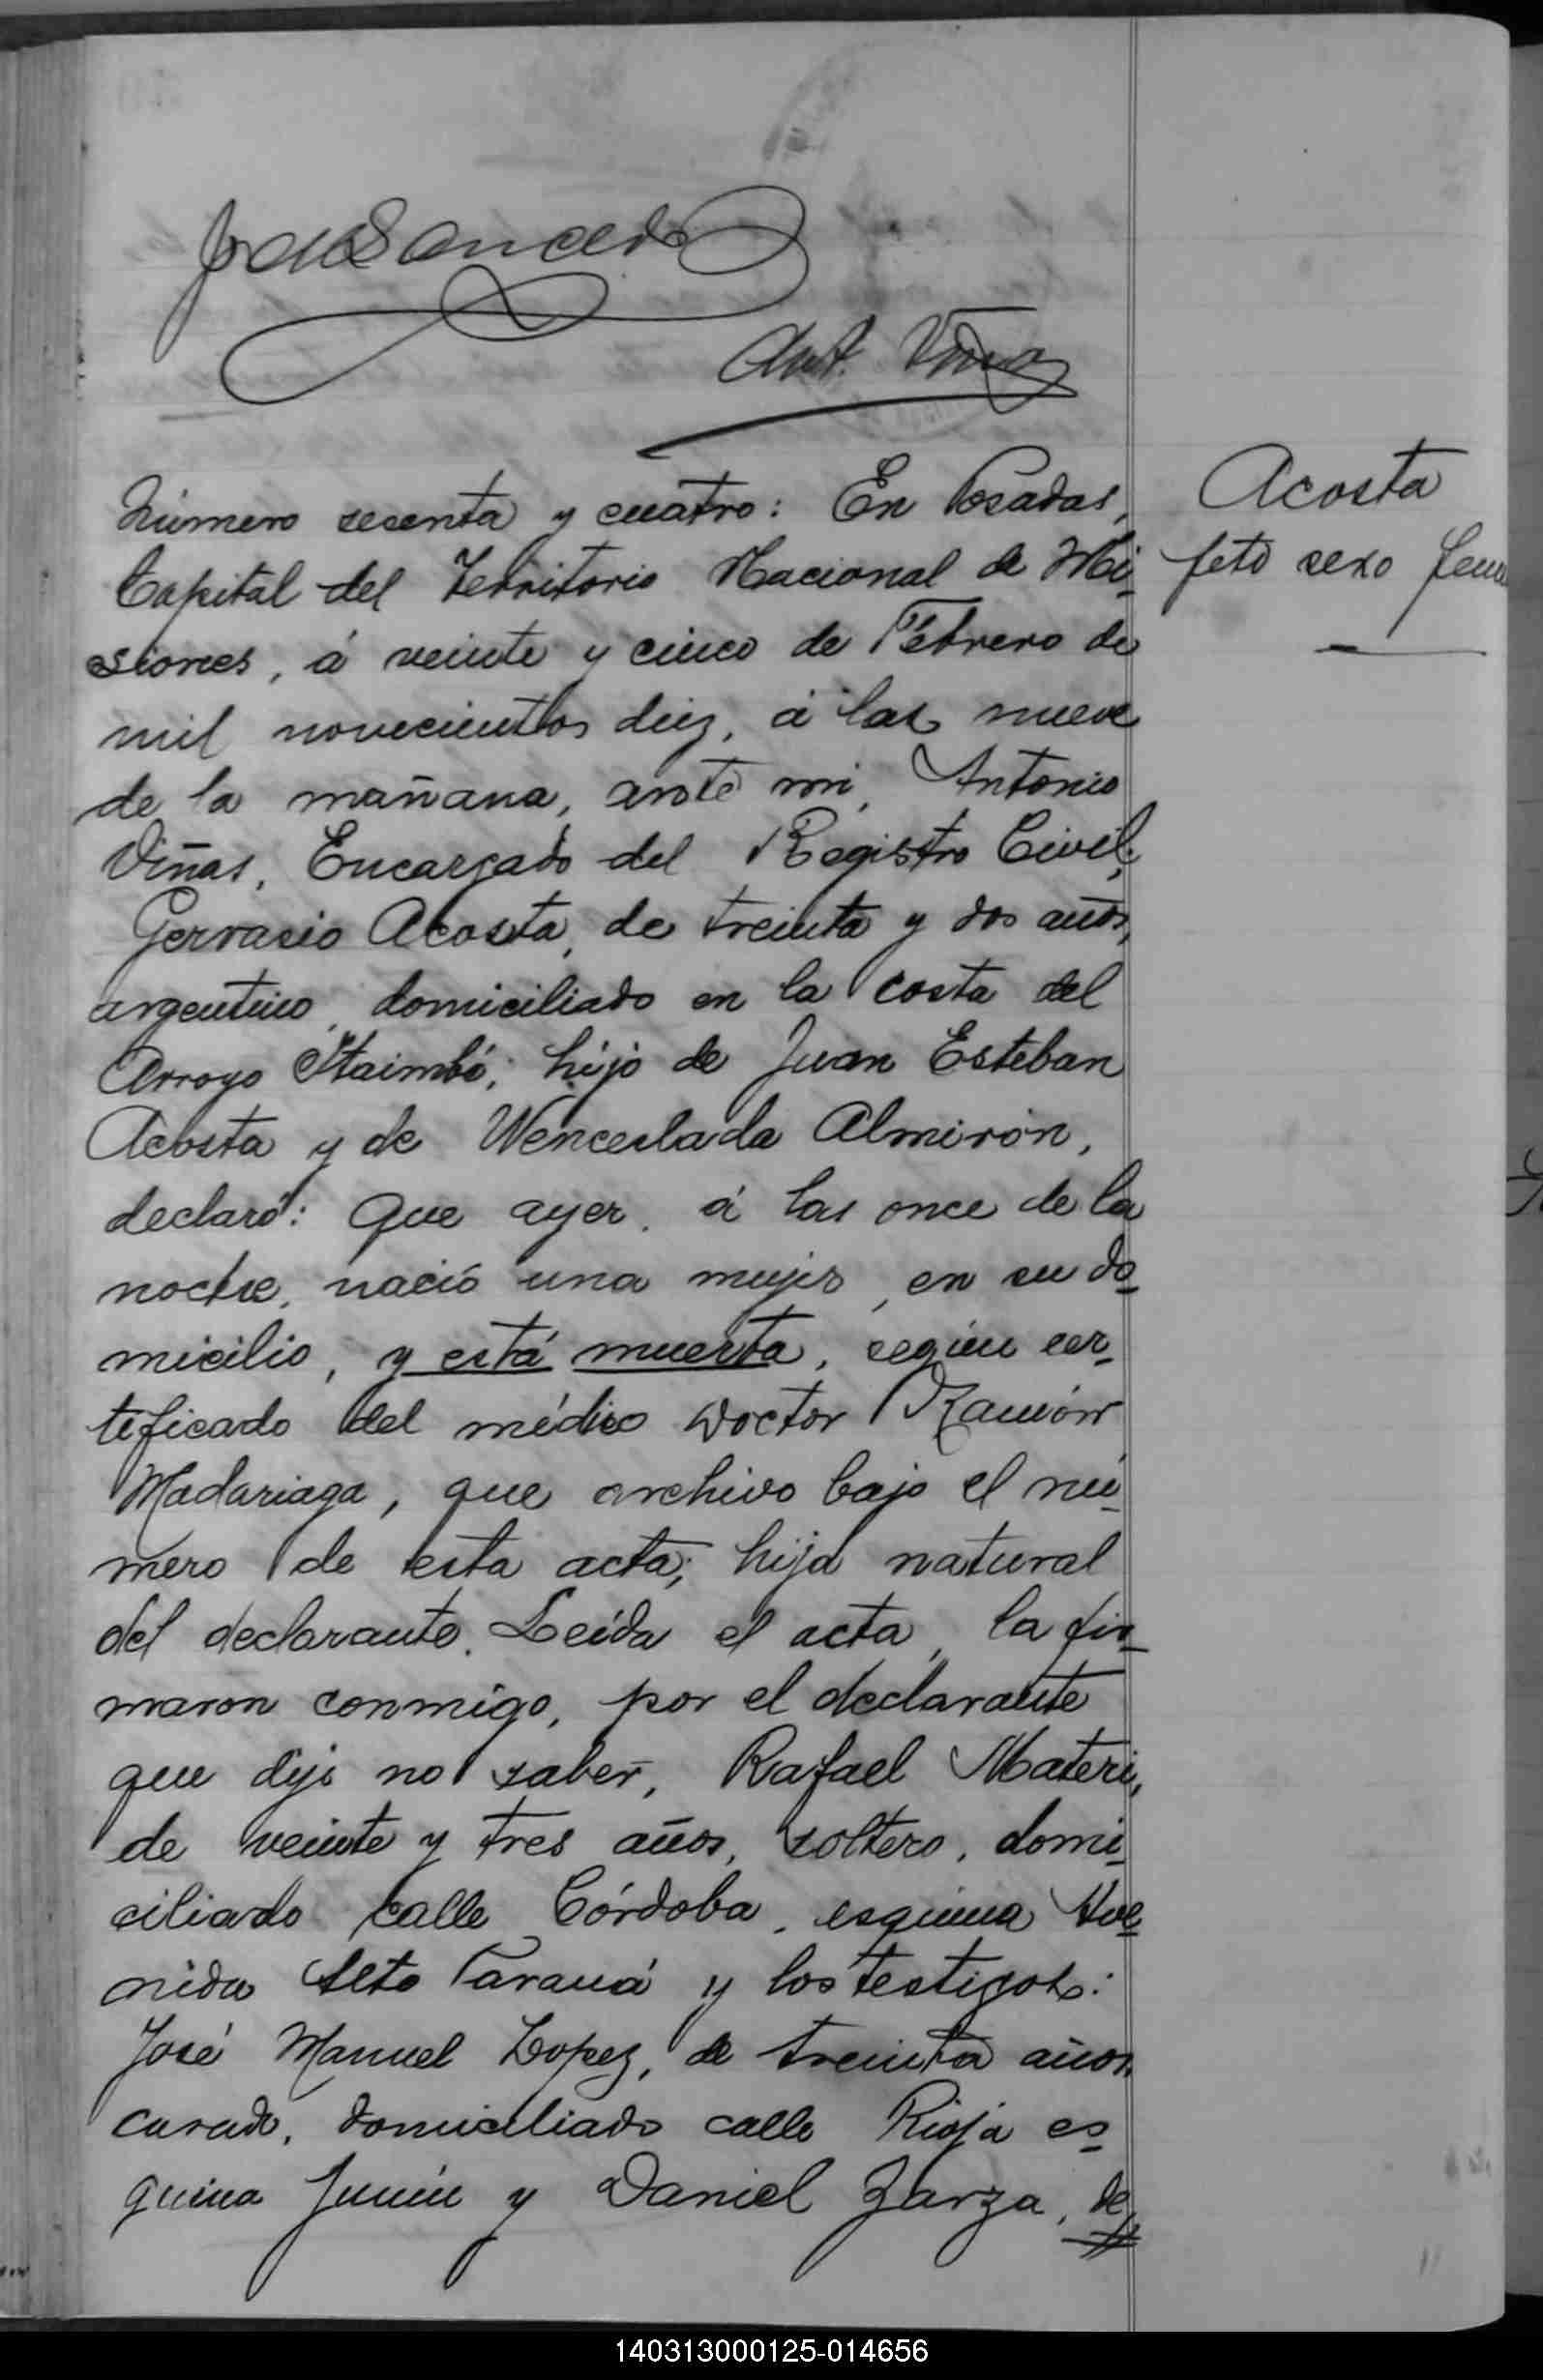 Ant. Viñas
Número secenta y cuatro: En Posadas,
Capital del Territorio Nacional de Mi-
siones, á veinte y cinco de Febrero de
mil novecientos diez, á las nueve
de la mañana, ante mi, Antonio
Viñas, Encargado del Registro Civil;
Gervasio Acosta, de treinta y dos años,
argentino, domiciliado en la costa del
Arroyo Itaimbé; hijo de Juan Esteban
Acosta y de Wenceslada Almirón,
declaró: Que ayer, á las once de la
noche, nació una mujer, en su do-
micilio, y está muerta, según cer-
tificado del médico Doctor Ramón
Madariaga, que archivo bajo el nú-
mero de esta acta; hija natural
del declarante. Leída el acta, la fir-
maron conmigo, por el declarante
que dijo no saber, Rafael Materi,
de veinte y tres años, soltero, domi-
ciliado calle Córdoba, esquina Ave-
nida Alto Paraná y los testigos:
José Manuel Lopez, de treinta años,
casado, domiciliado calle Rioja es-
quina Junín y Daniel Zarza, de
Acosta
feto sexo feme
140313000125-014656